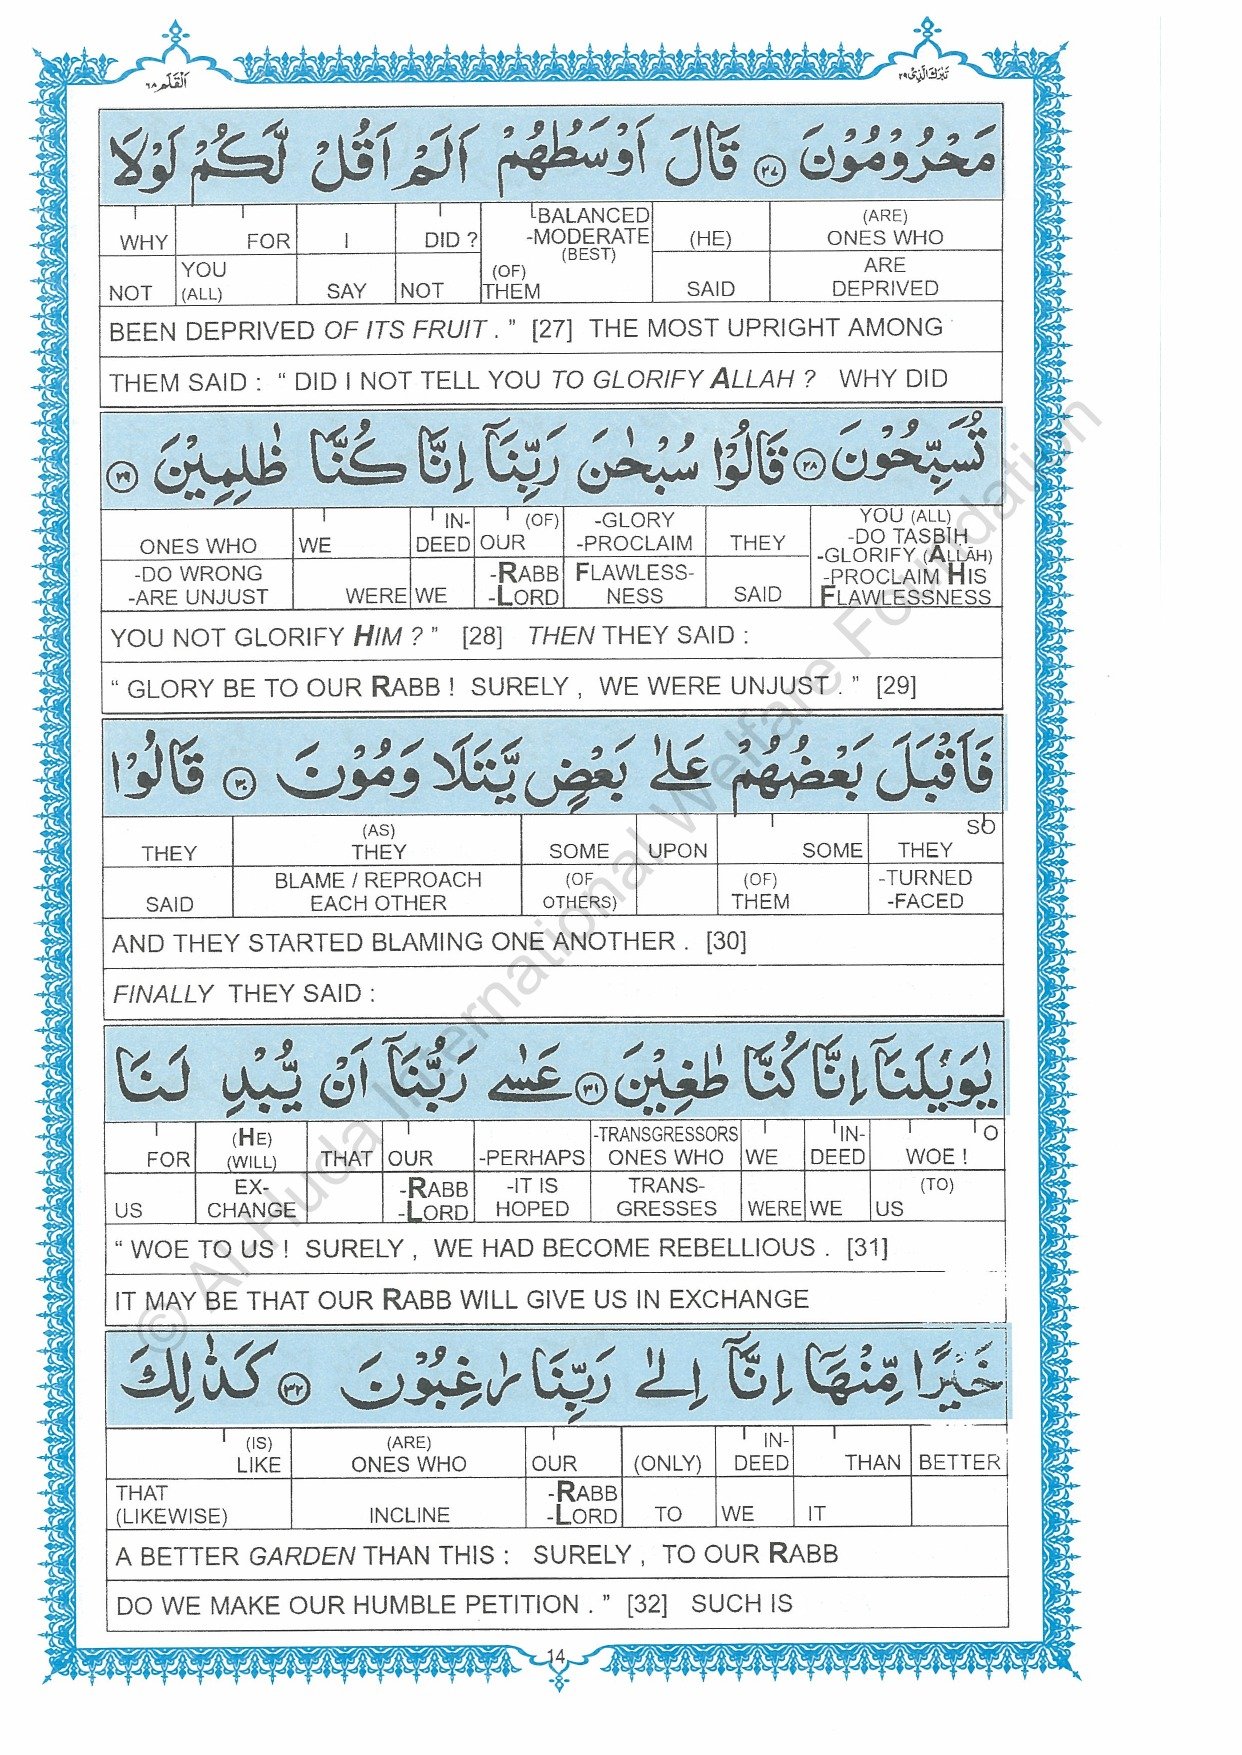 اَلْقَلَم ٦٨
تَبٰرَكَ الَّذِیْ ٢٩
مَحْرُوْمُوْنَ ٢٧ قَالَ اَوْسَطُهُمْ اَلَمْ اَقُلْ لَّكُمْ لَوْلَا
WHY FOR I DID ? -BALANCED -MODERATE (BEST) (HE) (ARE) ONES WHO
NOT YOU (ALL) SAY NOT (OF) THEM SAID ARE DEPRIVED
BEEN DEPRIVED OF ITS FRUIT . ” [27] THE MOST UPRIGHT AMONG
THEM SAID : “ DID I NOT TELL YOU TO GLORIFY ALLAH ? WHY DID
تُسَبِّحُوْنَ ٢٨ قَالُوْا سُبْحٰنَ رَبِّنَاۤ اِنَّا كُنَّا ظٰلِمِيْنَ ٢٩
ONES WHO WE IN-DEED (OF) OUR -GLORY -PROCLAIM THEY YOU (ALL) -DO TASBIH -GLORIFY (ALLĀH)
-DO WRONG -ARE UNJUST WERE WE -RABB -LORD FLAWLESS-NESS SAID -PROCLAIM HIS FLAWLESSNESS
YOU NOT GLORIFY HIM ? ” [28] THEN THEY SAID :
“ GLORY BE TO OUR RABB ! SURELY , WE WERE UNJUST . ” [29]
فَاَقْبَلَ بَعْضُهُمْ عَلٰى بَعْضٍ يَّتَلَاوَمُوْنَ ٣٠ قَالُوْا
THEY (AS) THEY SOME UPON SOME SO THEY
SAID BLAME / REPROACH EACH OTHER (OF OTHERS) (OF) THEM -TURNED -FACED
AND THEY STARTED BLAMING ONE ANOTHER . [30]
FINALLY THEY SAID :
يٰوَيْلَنَاۤ اِنَّا كُنَّا طٰغِيْنَ ٣١ عَسٰى رَبُّنَاۤ اَنْ يُّبْدِلَنَا
FOR (HE) (WILL) THAT OUR -PERHAPS -TRANSGRESSORS ONES WHO WE IN-DEED O WOE !
US EX-CHANGE -RABB -LORD -IT IS HOPED TRANS-GRESSES WERE WE (TO) US
“ WOE TO US ! SURELY , WE HAD BECOME REBELLIOUS . [31]
IT MAY BE THAT OUR RABB WILL GIVE US IN EXCHANGE
خَيْرًا مِّنْهَاۤ اِنَّاۤ اِلٰى رَبِّنَا رٰغِبُوْنَ ٣٢ كَذٰلِكَ
(IS) LIKE (ARE) ONES WHO OUR (ONLY) IN-DEED THAN BETTER
THAT (LIKEWISE) INCLINE -RABB -LORD TO WE IT
A BETTER GARDEN THAN THIS : SURELY , TO OUR RABB
DO WE MAKE OUR HUMBLE PETITION . ” [32] SUCH IS
14
© Al-Huda International Welfare Foundation